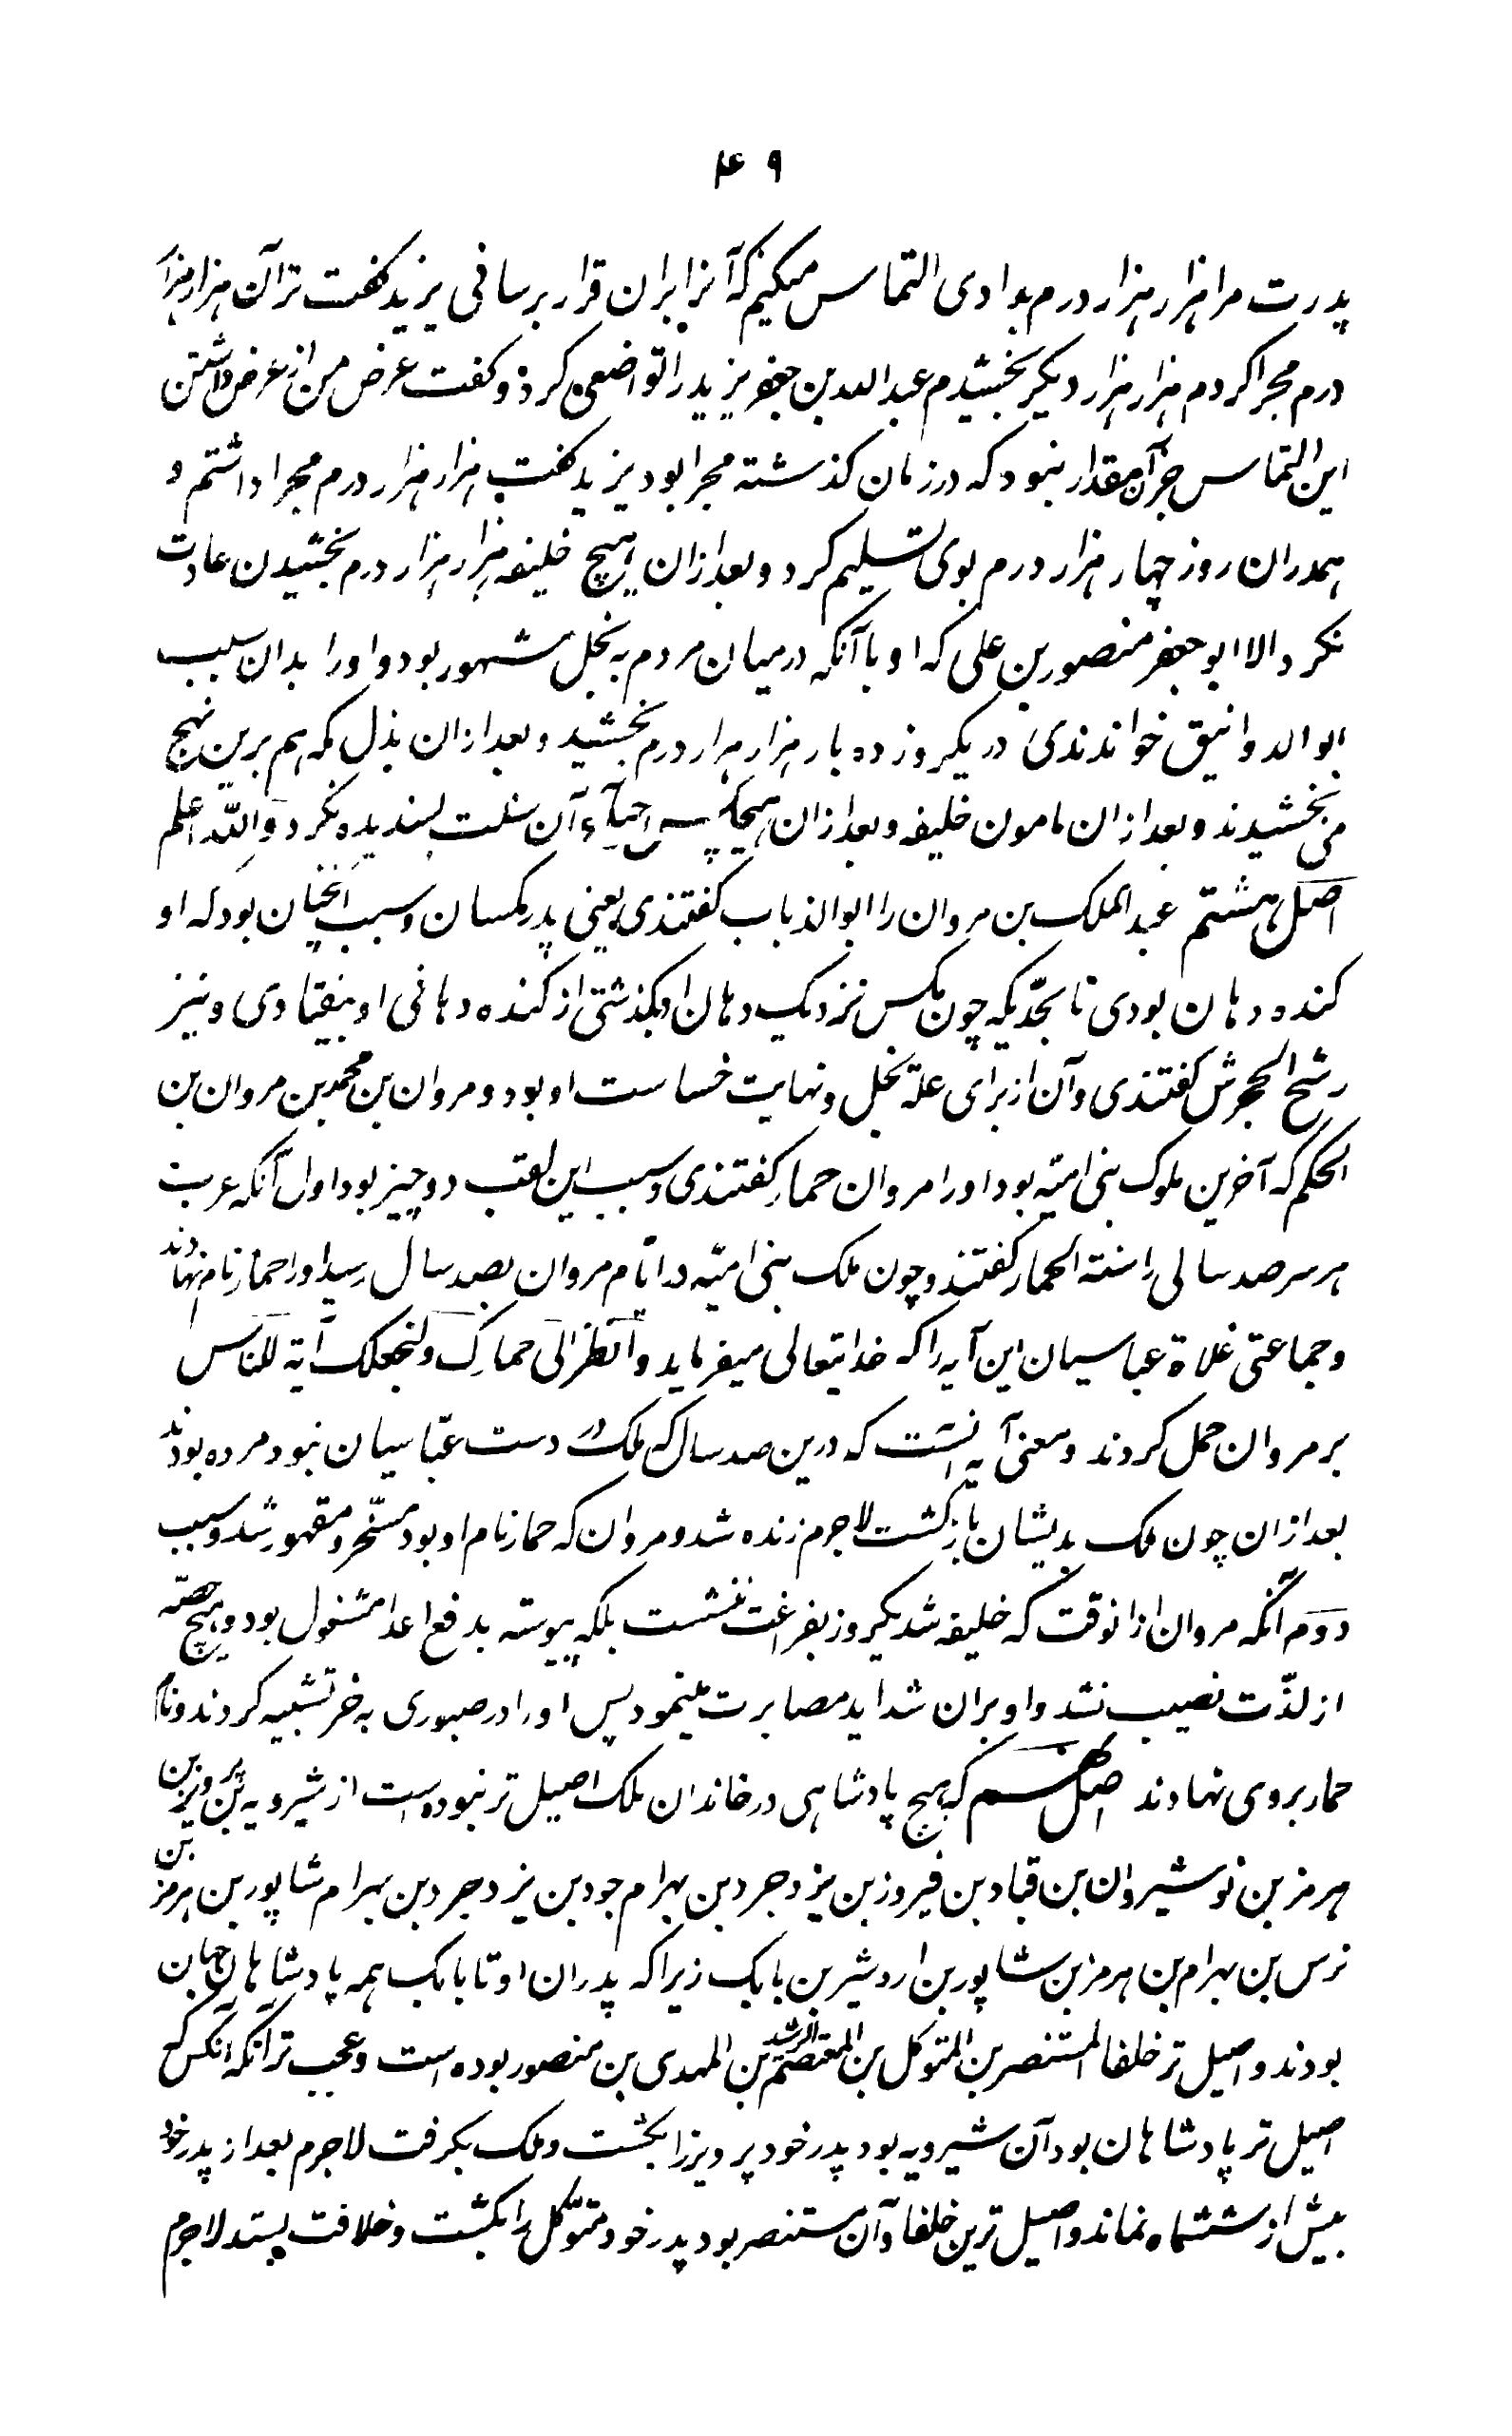 ۴۹
پدرت مرا هزار هزار درم بدادی التماس میکنم که آنرا بران قرار برسانی یزید کفت ترا آن هزار هزار
درم مجرا کردم هزار هزار دیکر بخشیدم عبد الله بن جعفر یزید را تواضعی کرد و کفت غرض من از عرض داشتن
این التماس جز آن مقدار نبود که در زمان کذشته مجرا بود یزید کفت هزار هزار درم مجرا داشتم و
همدران روز چهار هزار درم بوی تسلیم کرد و بعد ازان هیچ خلیفه هزار هزار درم بخشیدن عادت
نکرد الا ابو جعفر منصور بن علی که او با آنکه در میان مردم به بخل مشهور بود و او را بدان سبب
ابو الدوانیق خواندندی در یکروز ده بار هزار هزار درم بخشید و بعد ازان بذل که هم برین نهج
می بخشیدند و بعد ازان مامون خلیفه و بعد ازان هیچکس احیآء آن سنت پسندیده نکرد والله اعلم
اصل هشتم عبد الملک بن مروان را ابو الذباب کفتندی یعنی پدر مکسان و سبب آنچنان بود که او
کنده دهان بودی تا بحدیکه چون مکس نزدیک دهان او بکذشتی از کنده دهانی او بیفتادی و نیز
رشح الحجرش کفتندی و آن از برای علة بخل و نهایت خساست او بود و مروان بن محمد بن مروان بن
الحکم که آخرین ملوک بنی امیّه بود او را مروان حمار کفتندی و سبب این لقب دو چیز بود اول آنکه عرب
هر سر صد سالی را سنة الحمار کفتند و چون ملک بنی امیّه در ایّام مروان بصد سال رسید او را حمار نام نهادند
و جماعتی غلاة عباسیان این آیه را که خدایتعالی میفرماید وَانْظُر اِلَی حمارِک ولنجعلک آیة للناس
بر مروان حمل کردند و معنی آیه اینست که درین صد سال که ملک در دست عبّاسیان نبود مرده بودند
بعد ازان چون ملک بدیشان بازکشت لاجرم زنده شد و مروان که حمار نام او بود مسخّر و مقهور شد و سبب
دوم آنکه مروان ازانوقت که خلیفه شد یکروز بفراغت ننشست بلکه پیوسته بدفع اعدا مشغول بود و هیچ حصّه
از لذّت نصیب نشد و او بران شداید مصابرت مینمود پس او را در صبوری به خر تشبیه کردند و نام
حمار بروی نهادند اصل نهم که هیچ پادشاهی در خاندان ملک اصیل تر نبوده است از شیرویه بن پرویز بن
هرمز بن نوشیروان بن قباد بن فیروز بن یزدجرد بن بهرام جود بن یزدجرد بن بهرام شاپور بن هرمز بن
نرس بن بهرام بن هرمز بن شاپور بن اردشیر بن بابک زیرا که پدران او تا بابک همه پادشاهان جهان
بودند و اصیل تر خلفا المستنصر بن المتوکل بن المعتصم الرشید بن المهدی بن منصور بوده است و عجب تر آنکه آنکس که
اصیل تر پادشاهان بود آن شیرویه بود پدر خود پرویز را بکشت و ملک بکرفت لاجرم بعد از پدر خود
بیش از ششماه نماند و اصیل ترین خلفا و آن مستنصر بود پدر خود متوکّل را بکشت و خلافت بستد لاجرم